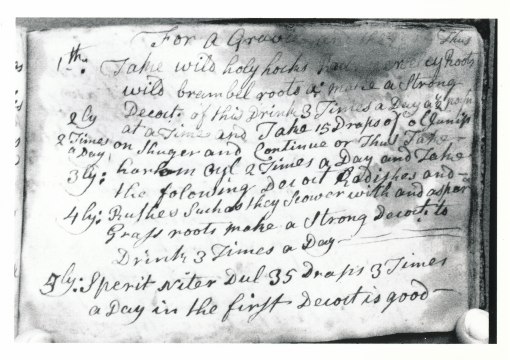 For a Grav the Thus
1th: Take wild holyhocks roots
wild brambel roots a; make a Strong
Decoit: of this Drink 3 Times a Day a
at a Time and Take 15 Draps of ol
2ly 2 Times a Day on Shuger and Continue or Thus Take
3ly: harlem oyl 2 Times a Day and Take
the folowing Decoit Radishes and
4ly: Rushes Such as they Scower with and aspar
Grass roots make a Strong Decoit: to
Drink 3 Times a Day
5ly: Sperit Niter Dul 35 Draps 3 Times
a Day in the first Decoit is good